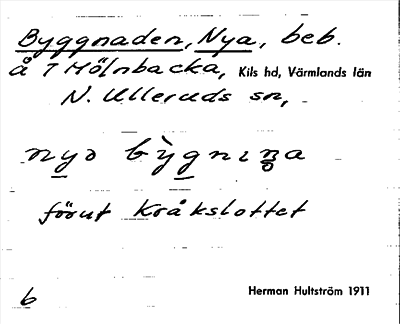 Byggnaden, Nya, beb.
å 7 Mölnbacka, Kils hd, Värmlands län
N. Ulleruds sn,
nyə bỳgnıṇa
förut Kråkslottet
6
Herman Hultström 1911